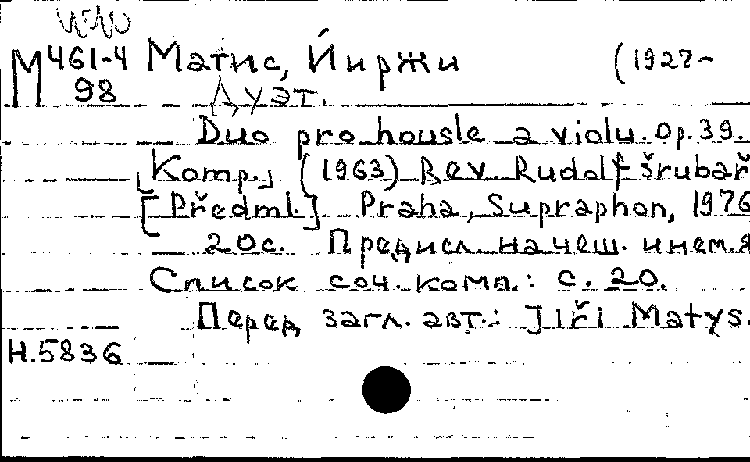 М461-4 Матис, Йиржи (1927-
98 Дуэт.
Duo pro housle a violu. Op. 39.
[Komp.] (1963) Rev. Rudolf Šrubař
[Předml.] Praha, Supraphon, 1976
20с. Предисл. на чеш. и нем. я
Список соч. комп.: с. 20.
Перед загл. авт.: Jiři Matys.
Н.5836